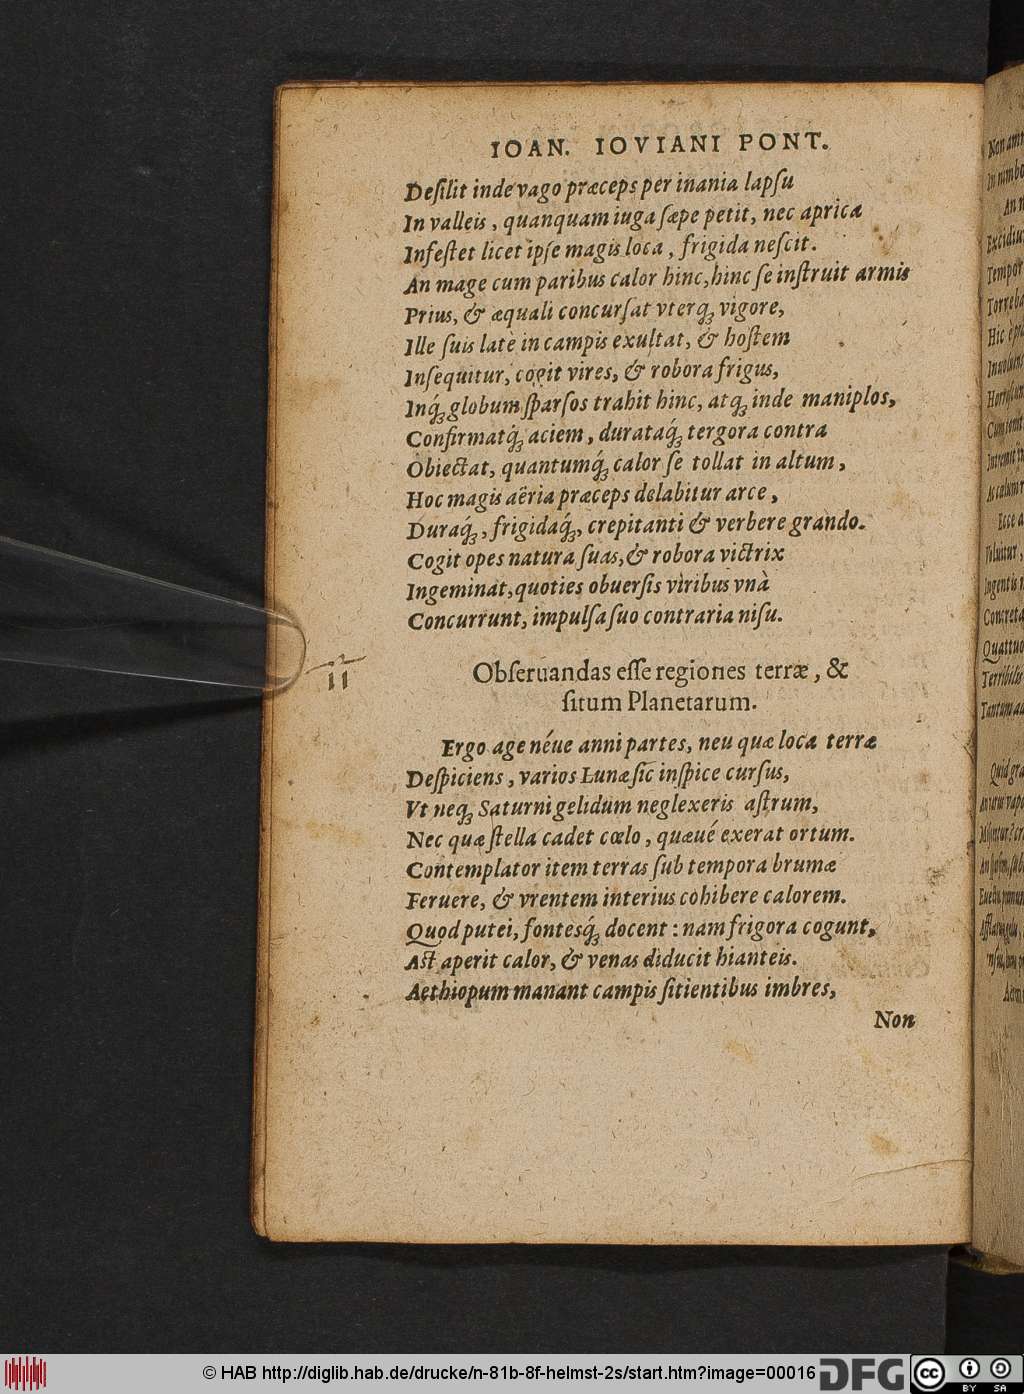 IOAN. IOVIANI PONT.
Deſilit inde vago præceps per inania lapſu
In valleis, quanquam iuga ſæpe petit, nec apricæ
Infeſtet licet ipſe magis loca, frigida neſcit.
An mage cum paribus calor hinc, hinc ſe inſtruit armis
Prius, & æquali concurſat vterq́ꝫ vigore,
Ille ſuis latè in campis exultat, & hoſtem
Inſequitur, cogit vires, & robora frigus,
Inq́ꝫ globum ſparſos trahit hinc, atqꝫ inde maniplos,
Confirmatq́ꝫ aciem, durataq́ꝫ tergora contra
Obiectat, quantumq́ꝫ calor ſe tollat in altum,
Hoc magis aëria præceps delabitur arce,
Duraq́ꝫ, frigidaq́ꝫ, crepitanti & verbere grando.
Cogit opes natura ſuas, & robora victrix
Ingeminat, quoties obuerſis viribus vnà
Concurrunt, impulſa ſuo contraria niſu.
11
Obſeruandas eſſe regiones terræ, &
ſitum Planetarum.
Ergo age néue anni partes, neu quæ loca terræ
Deſpiciens, varios Lunæ ſic inſpice curſus,
Vt neqꝫ Saturni gelidum neglexeris aſtrum,
Nec quæ ſtella cadet cœlo, quæué exerat ortum.
Contemplator item terras ſub tempora brumæ
Feruere, & vrentem interius cohibere calorem.
Quod putei, fontesq́ꝫ docent: nam frigora cogunt,
Aſt aperit calor, & venas diducit hianteis.
Aethiopum manant campis ſitientibus imbres,
Non
© HAB http://diglib.hab.de/drucke/n-81b-8f-helmst-2s/start.htm?image=00016
DFG
cc
BY SA